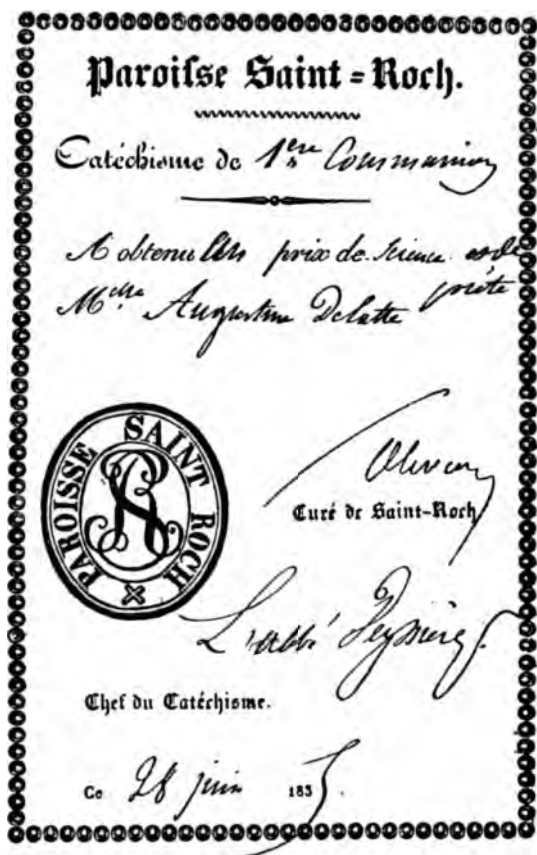 Paroisse Saint=Roch.
Catéchisme de 1ère Communion
A obtenu les prix de Science et de
piété
Melle Augustine Delatte
PAROISSE SAINT ROCH
SR
Olivier
Curé de Saint-Roch
L'abbé
Chef du Catéchisme.
Ce 28 juin 1835